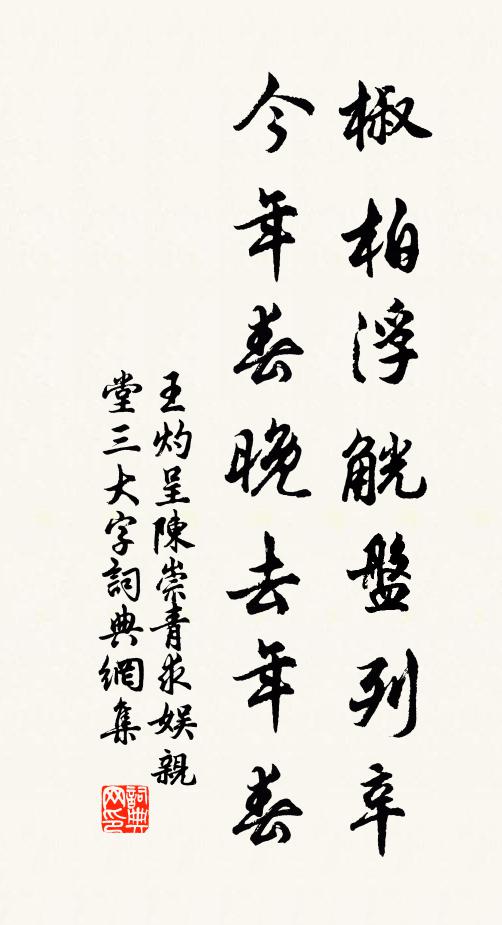 椒柏浮觥盤列辛
今年春晚去年春
王灼呈陳崇青求娱親
堂三大字詞典網集
詞典网印